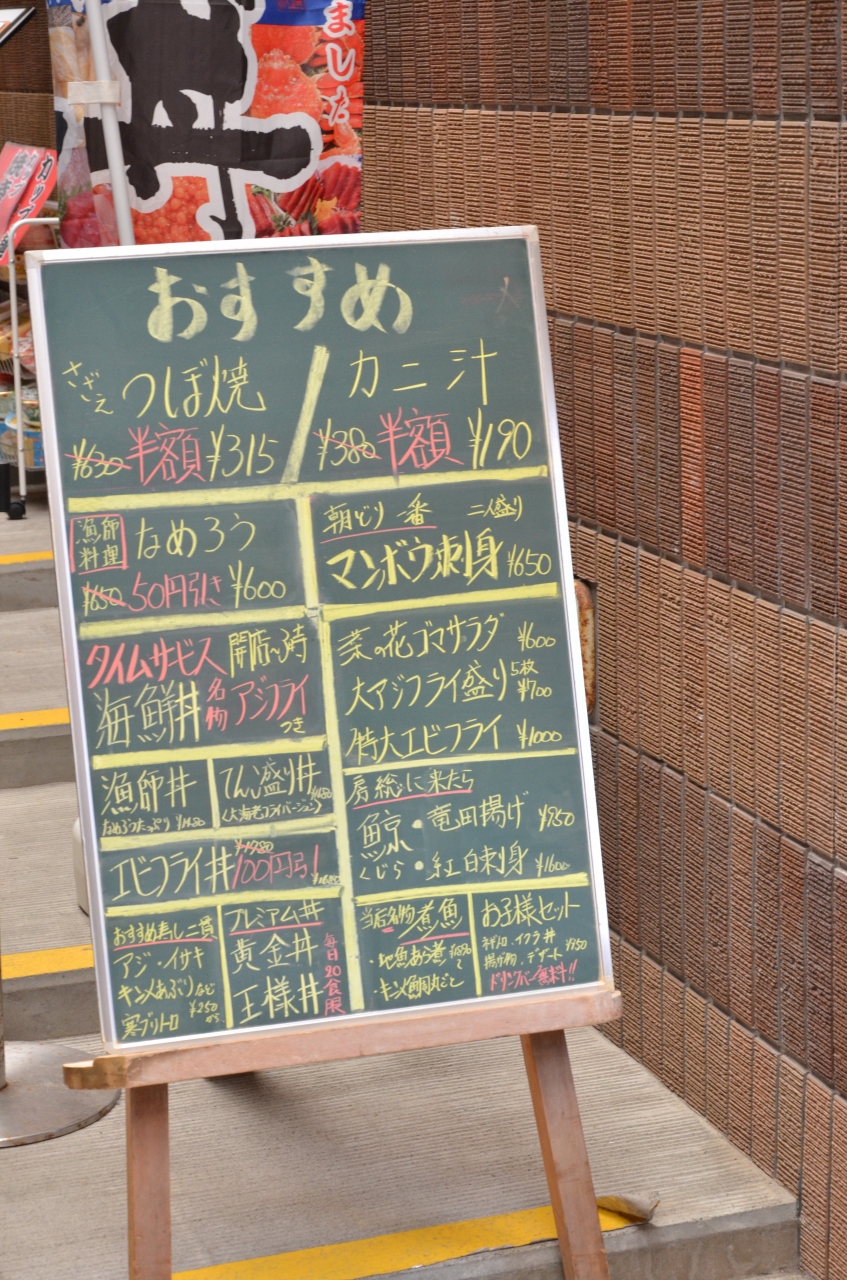 ました
丼
おすすめ
さざえ
つぼ焼
¥630 半額 ¥315
カニ汁
¥380 半額 ¥190
漁師料理
なめろう
¥650 50円引き ¥600
朝どり一番 二人盛り
マンボウ刺身 ¥650
タイムサービス 開店~3時
海鮮丼 名物 アジフライ
つき
菜の花ゴマサラダ ¥600
大アジフライ盛り 5枚 ¥700
特大エビフライ ¥1000
漁師丼
なめろうたっぷり
てん盛り丼
(大海老フライバージョン)
エビフライ丼 ¥1980
100円引
房総に来たら
鯨 くじら
・竜田揚げ ¥950
・紅白刺身 ¥1600
おすすめ寿し二貫
アジ・イサキ
キンメあぶりなど
寒ブリトロ
¥250から
プレミアム丼
黄金丼
王様丼
毎日20食限
当店名物煮魚
・地魚あら煮
・キンメ鯛丸ごと
お子様セット
ネギトロ・イクラ丼
揚げ物・デザート ¥950
ドリンクバー無料!!